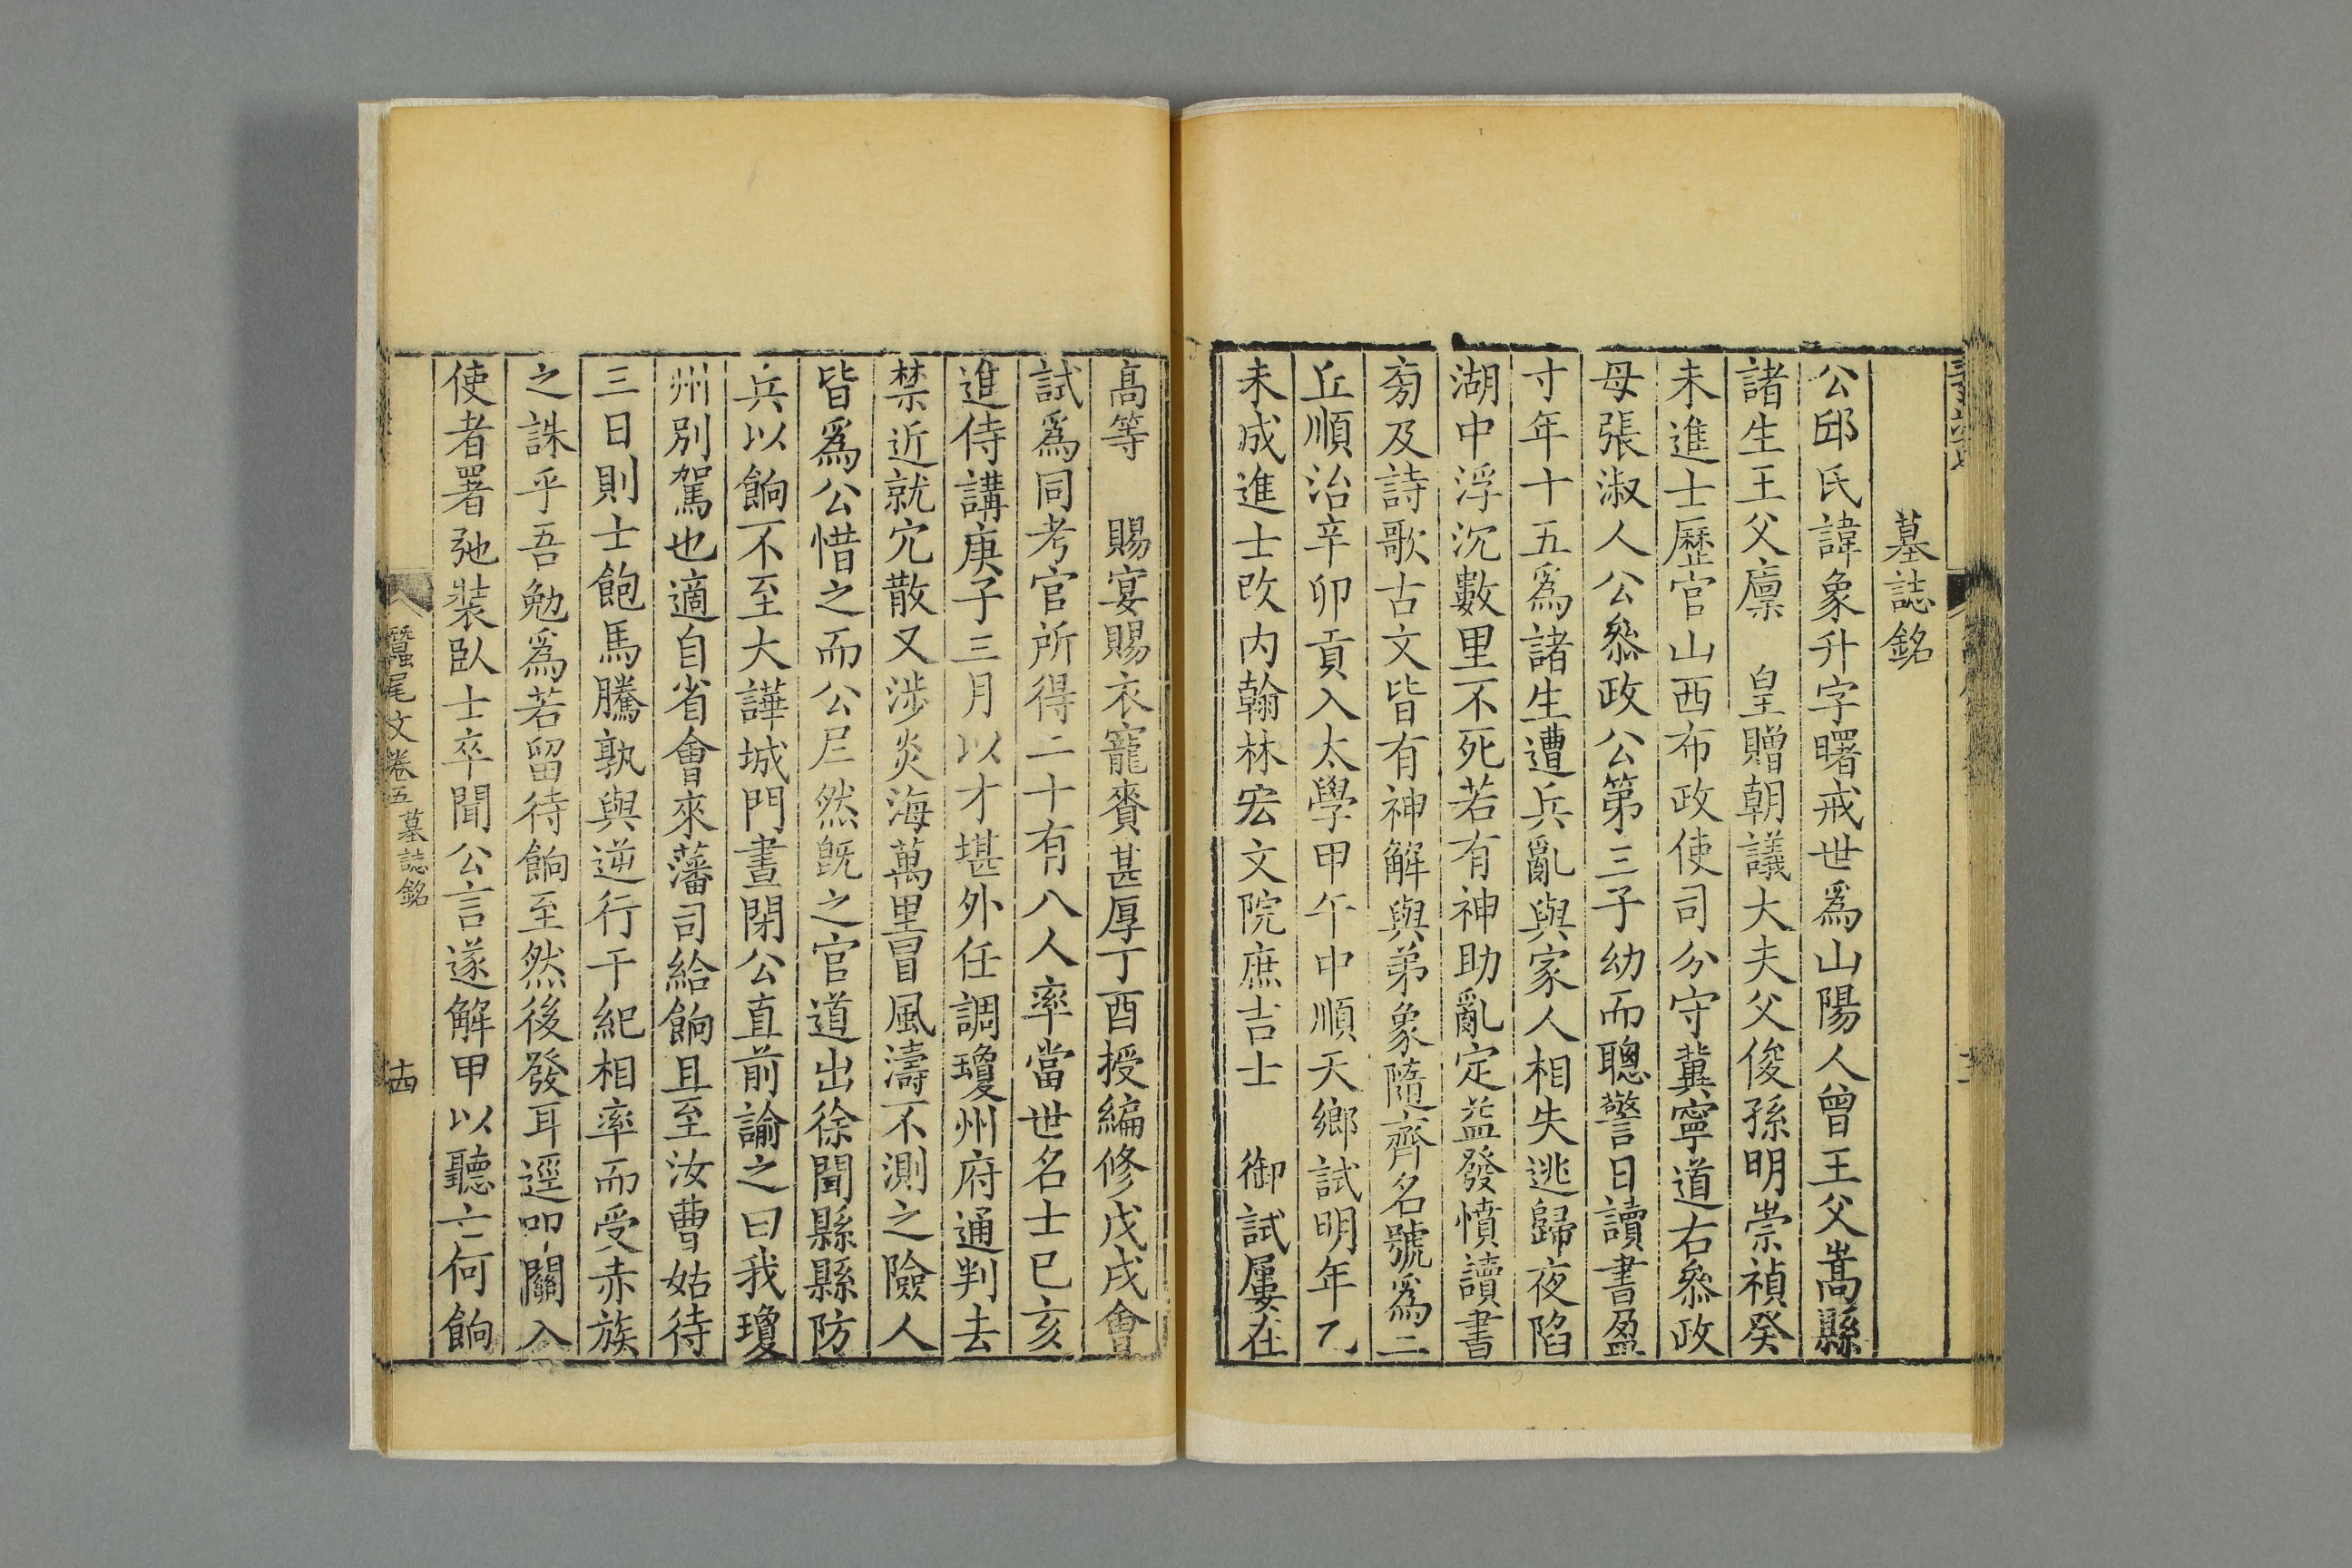 墓誌銘
公邱氏諱象升字曙戒世爲山陽人曾王父嵩縣
諸生王父廪　皇贈朝議大夫父俊孫明崇禎癸
未進士歷官山西布政使司分守冀寧道右叅政
母張淑人公叅政公第三子幼而聰警日讀書盈
寸年十五爲諸生遭兵亂與家人相失逃歸夜陷
湖中浮沉數里不死若有神助亂定益發憤讀書
㫄及詩歌古文皆有神解與弟象隨齊名號爲二
丘順治辛卯貢入太學甲午中順天鄉試明年乙
未成進士改内翰林宏文院庶吉士　御試屢在
高等　賜宴賜衣寵賚甚厚丁酉授編修戊戌會
試爲同考官所得二十有八人率當世名士己亥
進侍講庚子三月以才堪外任調瓊州府通判去
禁近就宂散又涉炎海萬里冒風濤不測之險人
皆爲公惜之而公㠯然旣之官道出徐聞縣縣防
兵以餉不至大譁城門晝閉公直前諭之曰我瓊
州別駕也適自省會來藩司給餉且至汝曹姑待
三日則士飽馬騰孰與逆行干紀相率而受赤族
之誅乎吾勉爲若留待餉至然後發耳逕叩關入
使者署弛裝臥士卒聞公言遂解甲以聽亡何餉
蠶尾文卷五 墓誌銘 十四